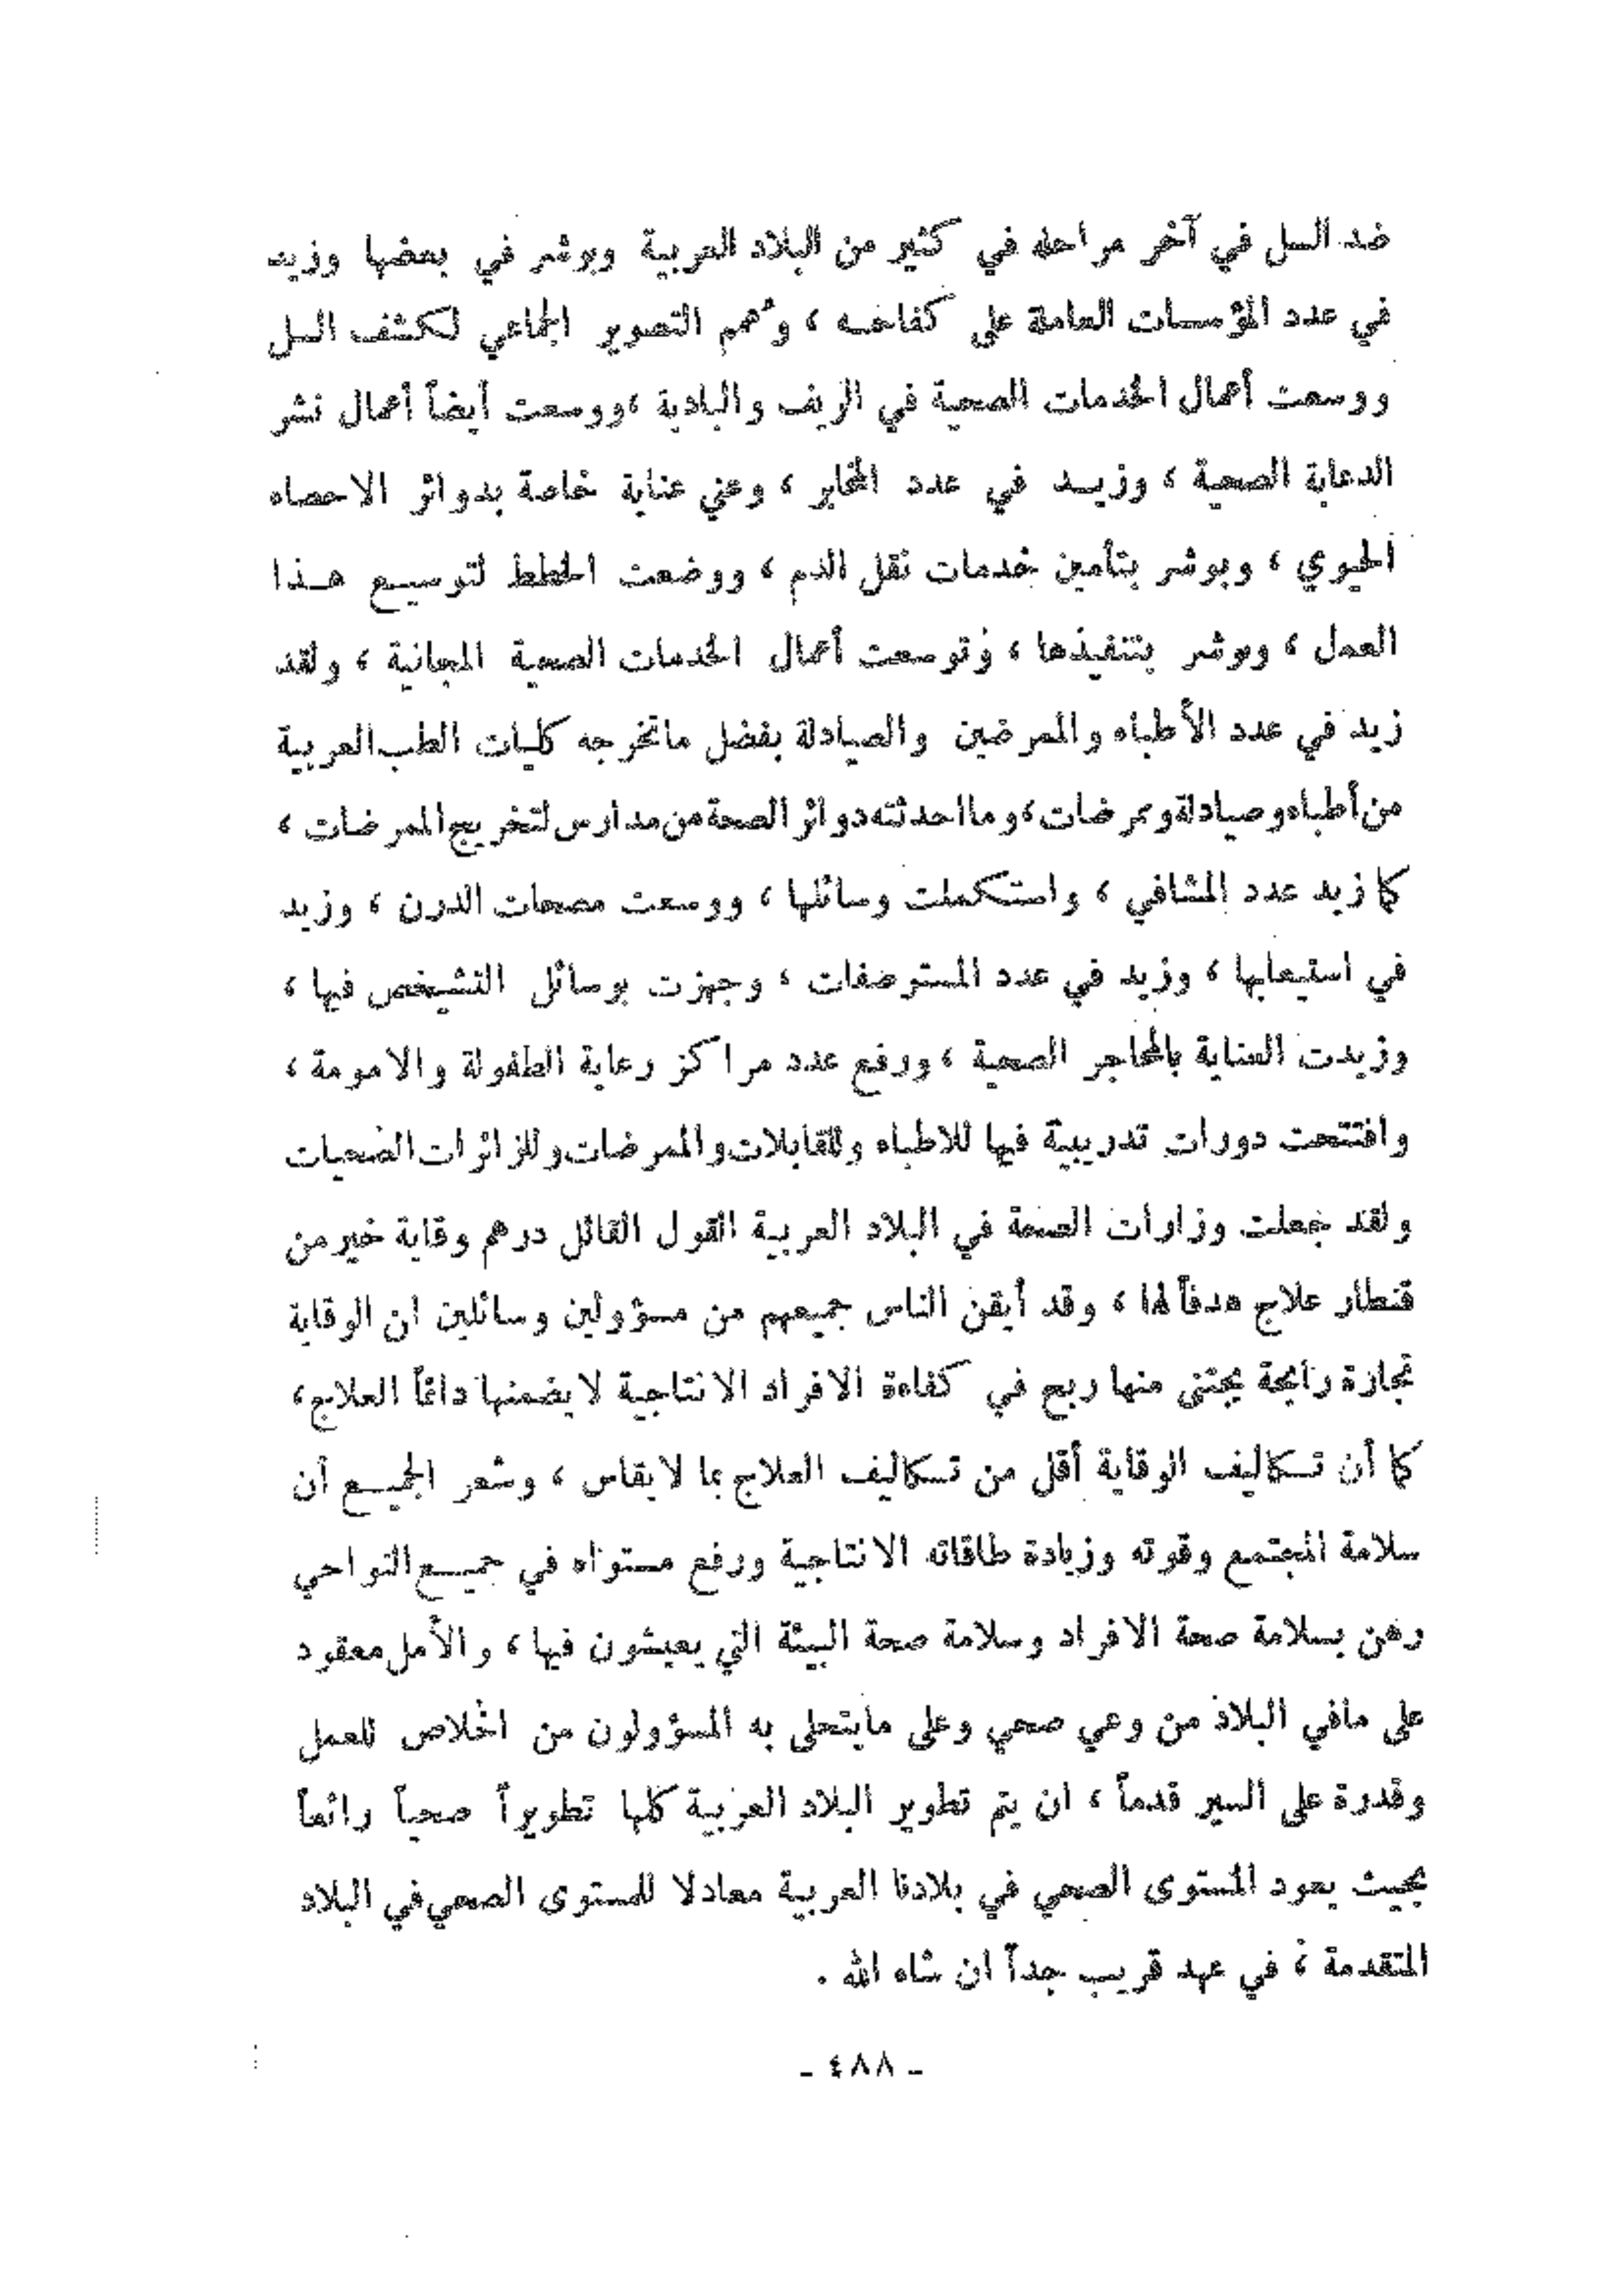 ضد السل في آخر مراحله في كثير من البلاد العربية وبوشر في بعضها وزيد
في عدد المؤسسات العاملة على كفاحه ، وعُمم التصوير الجماعي لكشف السل
ووسعت أعمال الخدمات الصحية في الريف والبادية ،ووسعت أيضاً أعمال نشر
الدعاية الصحية ، وزيد في عدد المخابر ، وعني عناية خاصة بدوائر الاحصاء
الحيوي ، وبوشر بتأمين خدمات نقل الدم ، ووضعت الخطط لتوسيع هذا
العمل ، وبوشر بتنفيذها ، وتوسعت أعمال الخدمات الصحية المجانية ، ولقد
زيد في عدد الأطباء والممرضين والصيادلة بفضل ماتخرجه كليات الطب العربية
من أطباء وصيادلة وممرضات ، وما احدثته دوائر الصحة من مدارس لتخريج الممرضات ،
كما زيد عدد المشافي ، واستكملت وسائلها ، ووسعت مصحات الدرن ، وزيد
في استيعابها ، وزيد في عدد المستوصفات ، وجهزت بوسائل التشيخص فيها ،
وزيدت العناية بالمحاجر الصحية ، ورفع عدد مراكز رعاية الطفولة والامومة ،
وافتتحت دورات تدريبية فيها للاطباء وللقابلات والممرضات وللزائرات الصحيات
ولقد جعلت وزارات الصحة في البلاد العربية القول القائل درهم وقاية خير من
قنطار علاج هدفاً لها ، وقد أيقن الناس جميعهم من مسؤولين وسائلين ان الوقاية
تجارة رابحة يجتنى منها ربح في كفاءة الافراد الانتاجية لا يضمنها دائماً العلاج ،
كما أن تكاليف الوقاية أقل من تكاليف العلاج بما لايقاس ، وشعر الجميع أن
سلامة المجتمع وقوته وزيادة طاقاته الانتاجية ورفع مستواه في جميع النواحي
رهن بسلامة صحة الافراد وسلامة صحة البيئة التي يعيشون فيها ، والأمل معقود
على مافي البلاد من وعي صحي وعلى مايتحلى به المسؤولون من اخلاص للعمل
وقدرة على السير قدماً ، ان يتم تطوير البلاد العربية كلها تطويراً صحياً رائعاً
بحيث يعود المستوى الصحي في بلادنا العربية معادلا للمستوى الصحي في البلاد
المتقدمة ، في عهد قريب جداً ان شاء الله .
- ٤٨٨ -